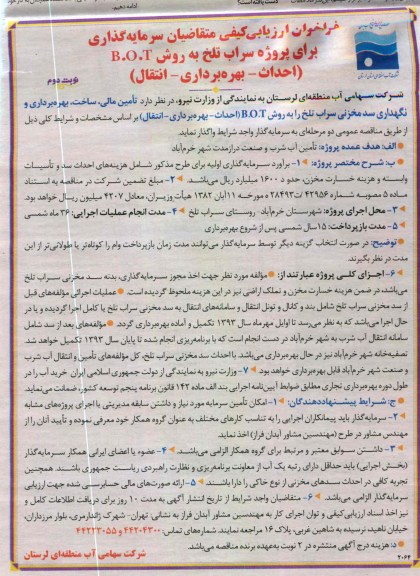 فراخوان ارزیابی کیفی متقاضیان سرمایه‌گذاری
برای پروژه سراب تلخ به روش B.O.T
(احداث - بهره‌برداری - انتقال)
نوبت دوم
شرکت سهامی آب منطقه‌ای لرستان به نمایندگی از وزارت نیرو، در نظر دارد تأمین مالی، ساخت، بهره‌برداری و
نگهداری سد مخزنی سراب تلخ را به روش B.O.T (احداث - بهره‌برداری - انتقال) بر اساس مشخصات و شرایط کلی ذیل
از طریق مناقصه عمومی دو مرحله‌ای به سرمایه‌گذار واجد شرایط واگذار نماید.
الف: هدف عمده پروژه: تأمین آب شرب و صنعت درازمدت شهر خرم‌آباد
ب: شرح مختصر پروژه: ۱- برآورد سرمایه‌گذاری اولیه برای طرح مذکور شامل هزینه‌های احداث سد و تأسیسات
وابسته و هزینه خسارت مخزن، حدود ۱۶۰۰ میلیارد ریال می‌باشد. ۲- مبلغ تضمین شرکت در مناقصه به استناد
ماده ۵ مصوبه شماره ۴۲۹۵۶/ت۲۸۴۹۳ه مورخه ۱۱ آبان ۱۳۸۲ هیأت وزیران، معادل ۴۲۰۷ میلیون ریال خواهد بود.
۳- محل اجرای پروژه: شهرستان خرم‌آباد - روستای سراب تلخ ۴- مدت انجام عملیات اجرایی: ۳۶ ماه شمسی
۵- مدت بازپرداخت: ۱۵ سال شمسی پس از شروع بهره‌برداری
توضیح: در صورت انتخاب گزینه دیگر توسط سرمایه‌گذار می‌توانند مدت زمان بازپرداخت وام را کوتاه‌تر یا طولانی‌تر از این
مدت در نظر بگیرند.
۶- اجزای کلی پروژه عبارتند از: مؤلفه مورد نظر جهت اخذ مجوز سرمایه‌گذاری، بدنه سد مخزنی سراب تلخ
می‌باشد، در ضمن هزینه خسارت مخزن و تملک اراضی نیز در این هزینه ملحوظ گردیده است. عملیات اجرائی مؤلفه‌های قبل
از سد مخزنی سراب تلخ شامل بند و کانال و تونل انتقال و سامانه‌های انتقال به سد مخزنی سراب تلخ یا کاملا اجرا گردیده و یا در
حال اجرا می‌باشد که به نظر می‌رسد تا اوایل مهرماه سال ۱۳۹۳ تکمیل و آماده بهره‌برداری گردد. مؤلفه‌های بعد از سد شامل
سامانه انتقال آب شرب به شهر خرم‌آباد در دست انجام است که با برنامه‌ریزی انجام شده تا پایان سال ۱۳۹۳ تکمیل خواهد شد.
تصفیه‌خانه شهر خرم‌آباد نیز در حال بهره‌برداری می‌باشد. با احداث سد مخزنی سراب تلخ، کل مؤلفه‌های تأمین و انتقال آب شرب
و صنعت شهر خرم‌آباد قابل بهره‌برداری خواهد بود. ۷- وزارت نیرو به نمایندگی از دولت جمهوری اسلامی ایران خرید آب را در
طول دوره بهره‌برداری تجاری مطابق ضوابط آیین‌نامه اجرایی بند الف ماده ۱۴۲ قانون برنامه پنجم توسعه کشور، ضمانت می‌نماید.
ج: شرایط پیشنهاددهندگان: ۱- امکان تأمین سرمایه مورد نیاز و داشتن سابقه مدیریتی یا اجرای پروژه‌های مشابه
۲- سرمایه‌گذار باید پیمانکاران اجرایی را به تناسب کارهای مختلف به عنوان گروه همکار خود معرفی نموده و تأیید آنان را از
مهندس مشاور در طرح (مهندسین مشاور آبدان فراز) اخذ نماید.
۳- داشتن سوابق معتبر و مرتبط برای گروه همکار الزامی می‌باشد. ۴- عضو یا اعضای ایرانی همکار سرمایه‌گذار
(بخش اجرایی) باید حداقل دارای رتبه یک آب از معاونت برنامه‌ریزی و نظارت راهبردی ریاست جمهوری باشند. همچنین
تجربه کافی در احداث سدهای مخزنی از نوع خاکی را دارا باشند. ۵- ارائه صورت‌های مالی حسابرسی شده جهت ارزیابی
سرمایه‌گذار الزامی می‌باشد. ۶- متقاضیان واجد شرایط از تاریخ انتشار آگهی به مدت ۱۰ روز برای دریافت اطلاعات کامل و
نیز اخذ اسناد ارزیابی کیفی و توان اجرای کار به مهندسین مشاور آبدان فراز به نشانی: تهران - شهرک ژاندارمری، بلوار مرزداران،
خیابان ناهید، نرسیده به شاهین غربی، پلاک ۱۶ مراجعه نمایند. شماره‌های تماس: ۴۴۲۰۴۳۰۰ و ۴۴۲۳۳۰۵۵
د: هزینه درج آگهی منتشره در ۲ نوبت به‌عهده برنده مناقصه می‌باشد.
شرکت سهامی آب منطقه‌ای لرستان
۲۰۶۴